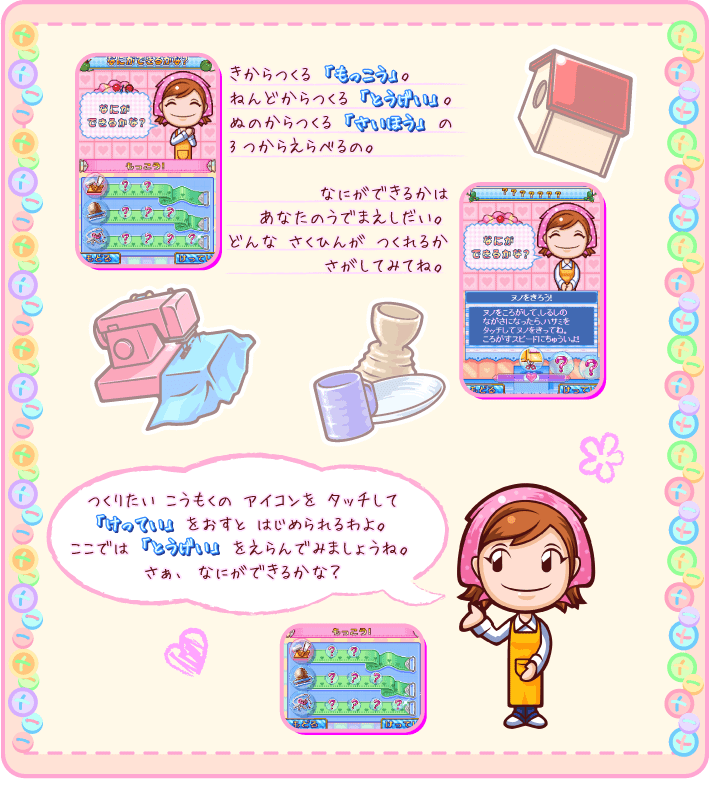 なにができるかな?
なにが
できるかな?
もっこう!
? ?
? ? ?
? ? ? ?
もどる けってい
きからつくる 「もっこう」。
ねんどからつくる 「とうげい」。
ぬのからつくる 「さいほう」 の
3つからえらべるの。
なにができるかは
あなたのうでまえしだい。
どんな さくひんが つくれるか
さがしてみてね。
???????
なにが
できるかな?
ヌノをきろう!
ヌノをころがして、しるしの
ながさになったら、ハサミを
タッチしてヌノをきってね。
ころがすスピードにちゅういよ!
? ?
もどる けってい
つくりたい こうもくの アイコンを タッチして
「けってい」 をおすと はじめられるわよ。
ここでは 「とうげい」 をえらんでみましょうね。
さぁ、 なにができるかな?
もっこう!
? ?
? ? ?
? ? ? ?
もどる けってい